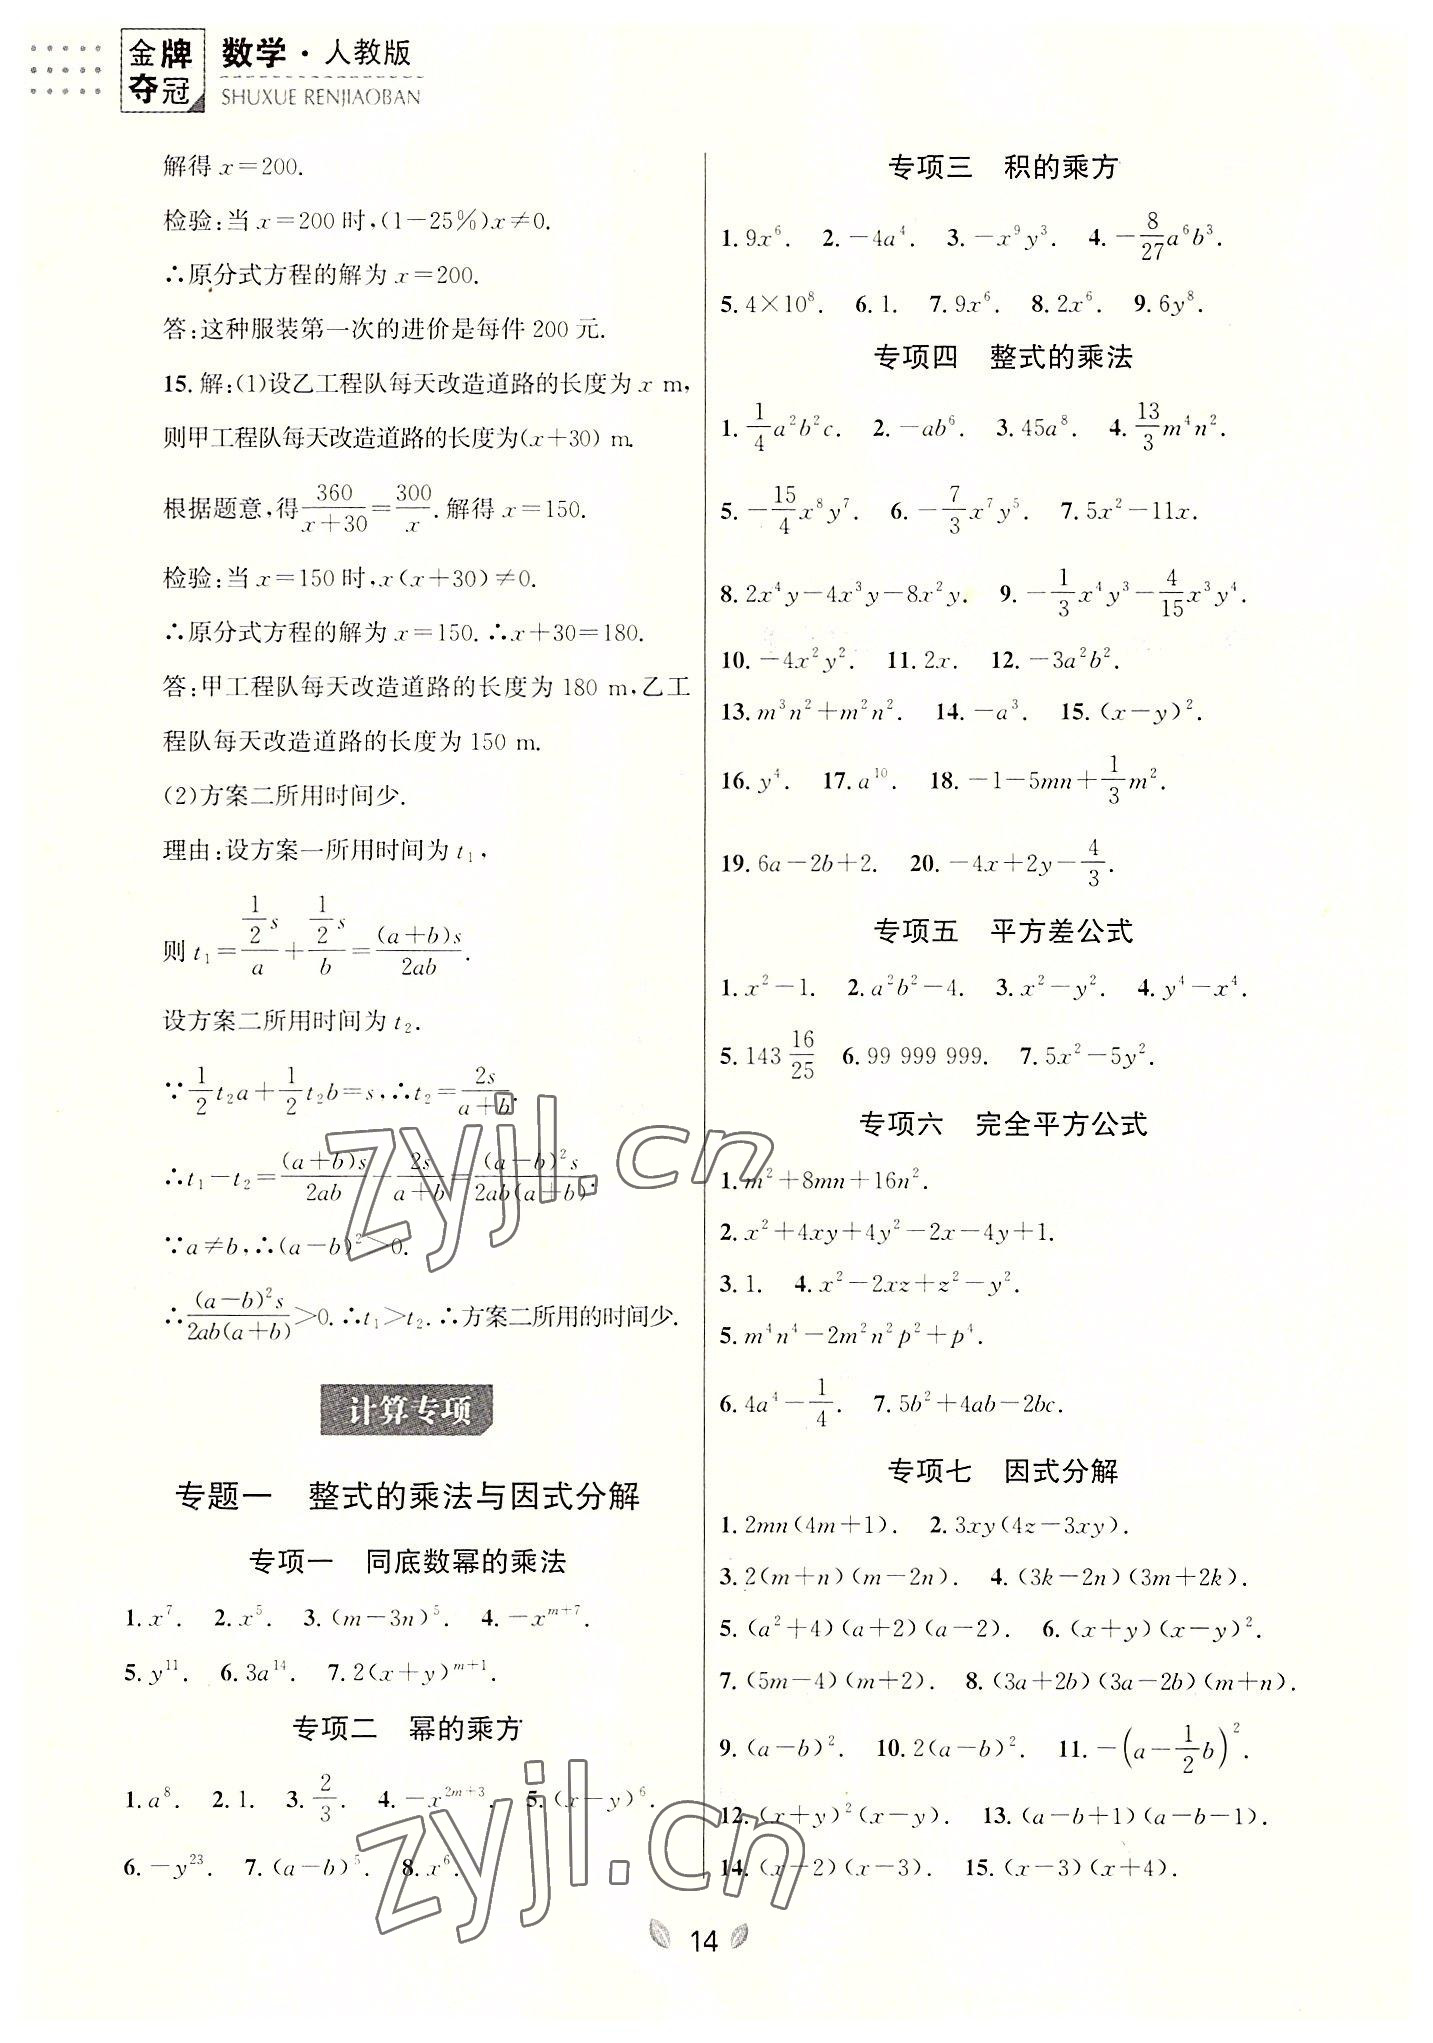 金牌
夺冠
数学·人教版
SHUXUE RENJIAOBAN
解得 x=200.
检验:当 x=200 时,(1-25%)x≠0.
∴原分式方程的解为 x=200.
答:这种服装第一次的进价是每件 200 元.
15. 解:(1)设乙工程队每天改造道路的长度为 x m,
则甲工程队每天改造道路的长度为(x+30) m.
根据题意,得 360/(x+30)=300/x. 解得 x=150.
检验:当 x=150 时,x(x+30)≠0.
∴原分式方程的解为 x=150. ∴x+30=180.
答:甲工程队每天改造道路的长度为 180 m,乙工
程队每天改造道路的长度为 150 m.
(2)方案二所用时间少.
理由:设方案一所用时间为 t₁,
则 t₁=(1/2 s)/a+(1/2 s)/b=(a+b)s/2ab.
设方案二所用时间为 t₂.
∵1/2 t₂a+1/2 t₂b=s,∴t₂=2s/(a+b).
∴t₁-t₂=(a+b)s/2ab-2s/(a+b)=(a-b)²s/2ab(a+b).
∵a≠b,∴(a-b)²>0.
∴(a-b)²s/2ab(a+b)>0. ∴t₁>t₂. ∴方案二所用的时间少.
计算专项
专题一 整式的乘法与因式分解
专项一 同底数幂的乘法
1. x⁷. 2. x⁵. 3. (m-3n)⁵. 4. -x^(m+7).
5. y¹¹. 6. 3a¹⁴. 7. 2(x+y)^(m+1).
专项二 幂的乘方
1. a⁸. 2. 1. 3. 2/3. 4. -x^(2m+3). 5. (x-y)⁶.
6. -y²³. 7. (a-b)⁵. 8. x⁶.
专项三 积的乘方
1. 9x⁶. 2. -4a⁴. 3. -x⁹y³. 4. -8/27 a⁶b³.
5. 4×10⁸. 6. 1. 7. 9x⁶. 8. 2x⁶. 9. 6y⁸.
专项四 整式的乘法
1. 1/4 a²b²c. 2. -ab⁶. 3. 45a⁸. 4. 13/3 m⁴n².
5. -15/4 x⁸y⁷. 6. -7/3 x⁷y⁵. 7. 5x²-11x.
8. 2x⁴y-4x³y-8x²y. 9. -1/3 x⁴y³-4/15 x³y⁴.
10. -4x²y². 11. 2x. 12. -3a²b².
13. m³n²+m²n². 14. -a³. 15. (x-y)².
16. y⁴. 17. a¹⁰. 18. -1-5mn+1/3 m².
19. 6a-2b+2. 20. -4x+2y-4/3.
专项五 平方差公式
1. x²-1. 2. a²b²-4. 3. x²-y². 4. y⁴-x⁴.
5. 143 16/25 6. 99 999 999. 7. 5x²-5y².
专项六 完全平方公式
1. m²+8mn+16n².
2. x²+4xy+4y²-2x-4y+1.
3. 1. 4. x²-2xz+z²-y².
5. m⁴n⁴-2m²n²p²+p⁴.
6. 4a⁴-1/4. 7. 5b²+4ab-2bc.
专项七 因式分解
1. 2mn(4m+1). 2. 3xy(4z-3xy).
3. 2(m+n)(m-2n). 4. (3k-2n)(3m+2k).
5. (a²+4)(a+2)(a-2). 6. (x+y)(x-y)².
7. (5m-4)(m+2). 8. (3a+2b)(3a-2b)(m+n).
9. (a-b)². 10. 2(a-b)². 11. -(a-1/2 b)².
12. (x+y)²(x-y). 13. (a-b+1)(a-b-1).
14. (x-2)(x-3). 15. (x-3)(x+4).
14
zyjl.cn
zyjl.cn